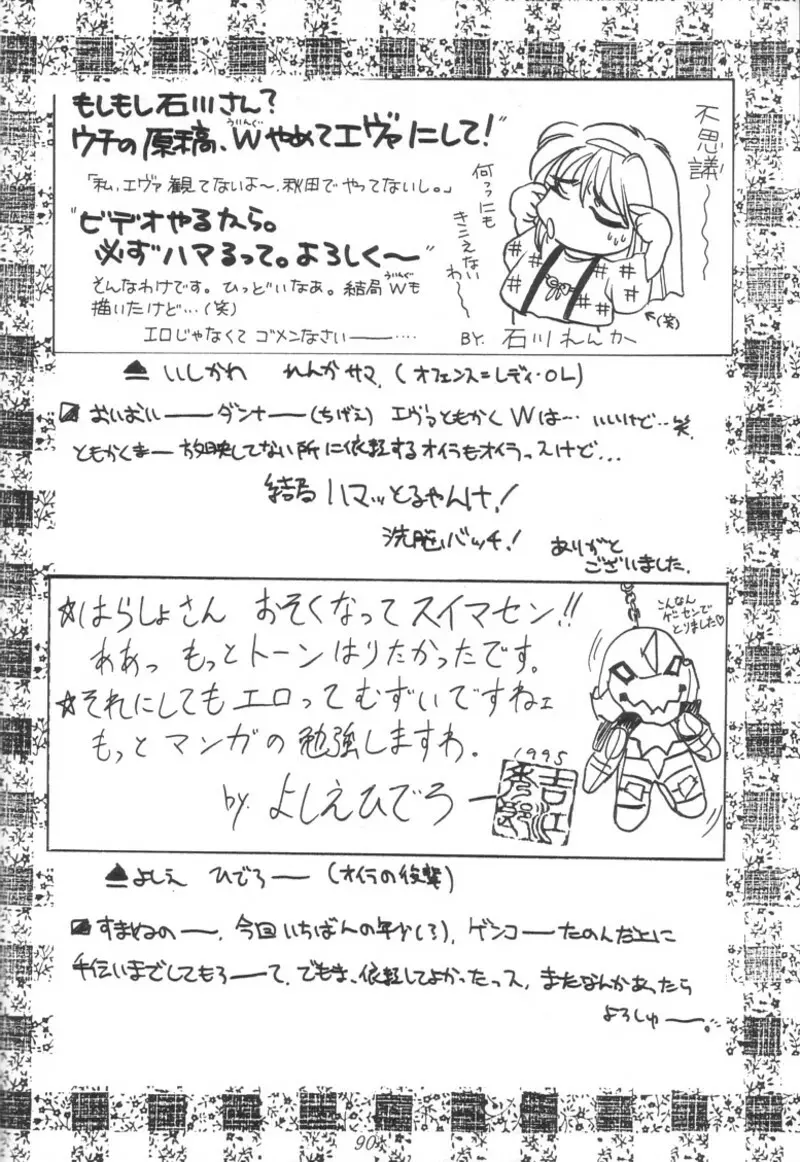 もしもし石川さん?
ウチの原稿、Wやめてエヴァにして!"
ういんぐ
「私、エヴァ観てないよ〜、秋田でやってないし。」
"ビデオやるから。
必ずハマるって。よろしく〜"
そんなわけです。ひっどいなあ。結局Wも
ういんぐ
描いたけど…(笑)
エロじゃなくてゴメンなさい――…
不思議〜〜
何っにも
きこえない
わ〜
←(笑)
BY. 石川れんか
▲いしかわ れんかサマ。(オフェンス=レディ・OL)
おいおい――ダンナ――(ちげえ) エヴァともかくWは… いいけど…笑。
ともかくまー 放映してない所に依頼するオイラもオイラっスけど…
結局ハマッとるやんけ!
洗脳バッチ!
ありがと
ございました。
☆はらしょさん おそくなってスイマセン!!
ああっ もっとトーンはりたかったです。
☆それにしてもエロってむずいですねェ
もっとマンガの勉強しますわ。
by. よしえひでろー
1995
こんなん
ゲーセンで
とりました♡
▲よしえ ひでろー (オイラの後輩)
すまぬの――、今回いちばんの年少(?)、ゲンコ――たのんだ上に
手伝いまでしてもろ――て、でもま、依頼してよかったっス、またなんかあったら
よろしゅ――。
90